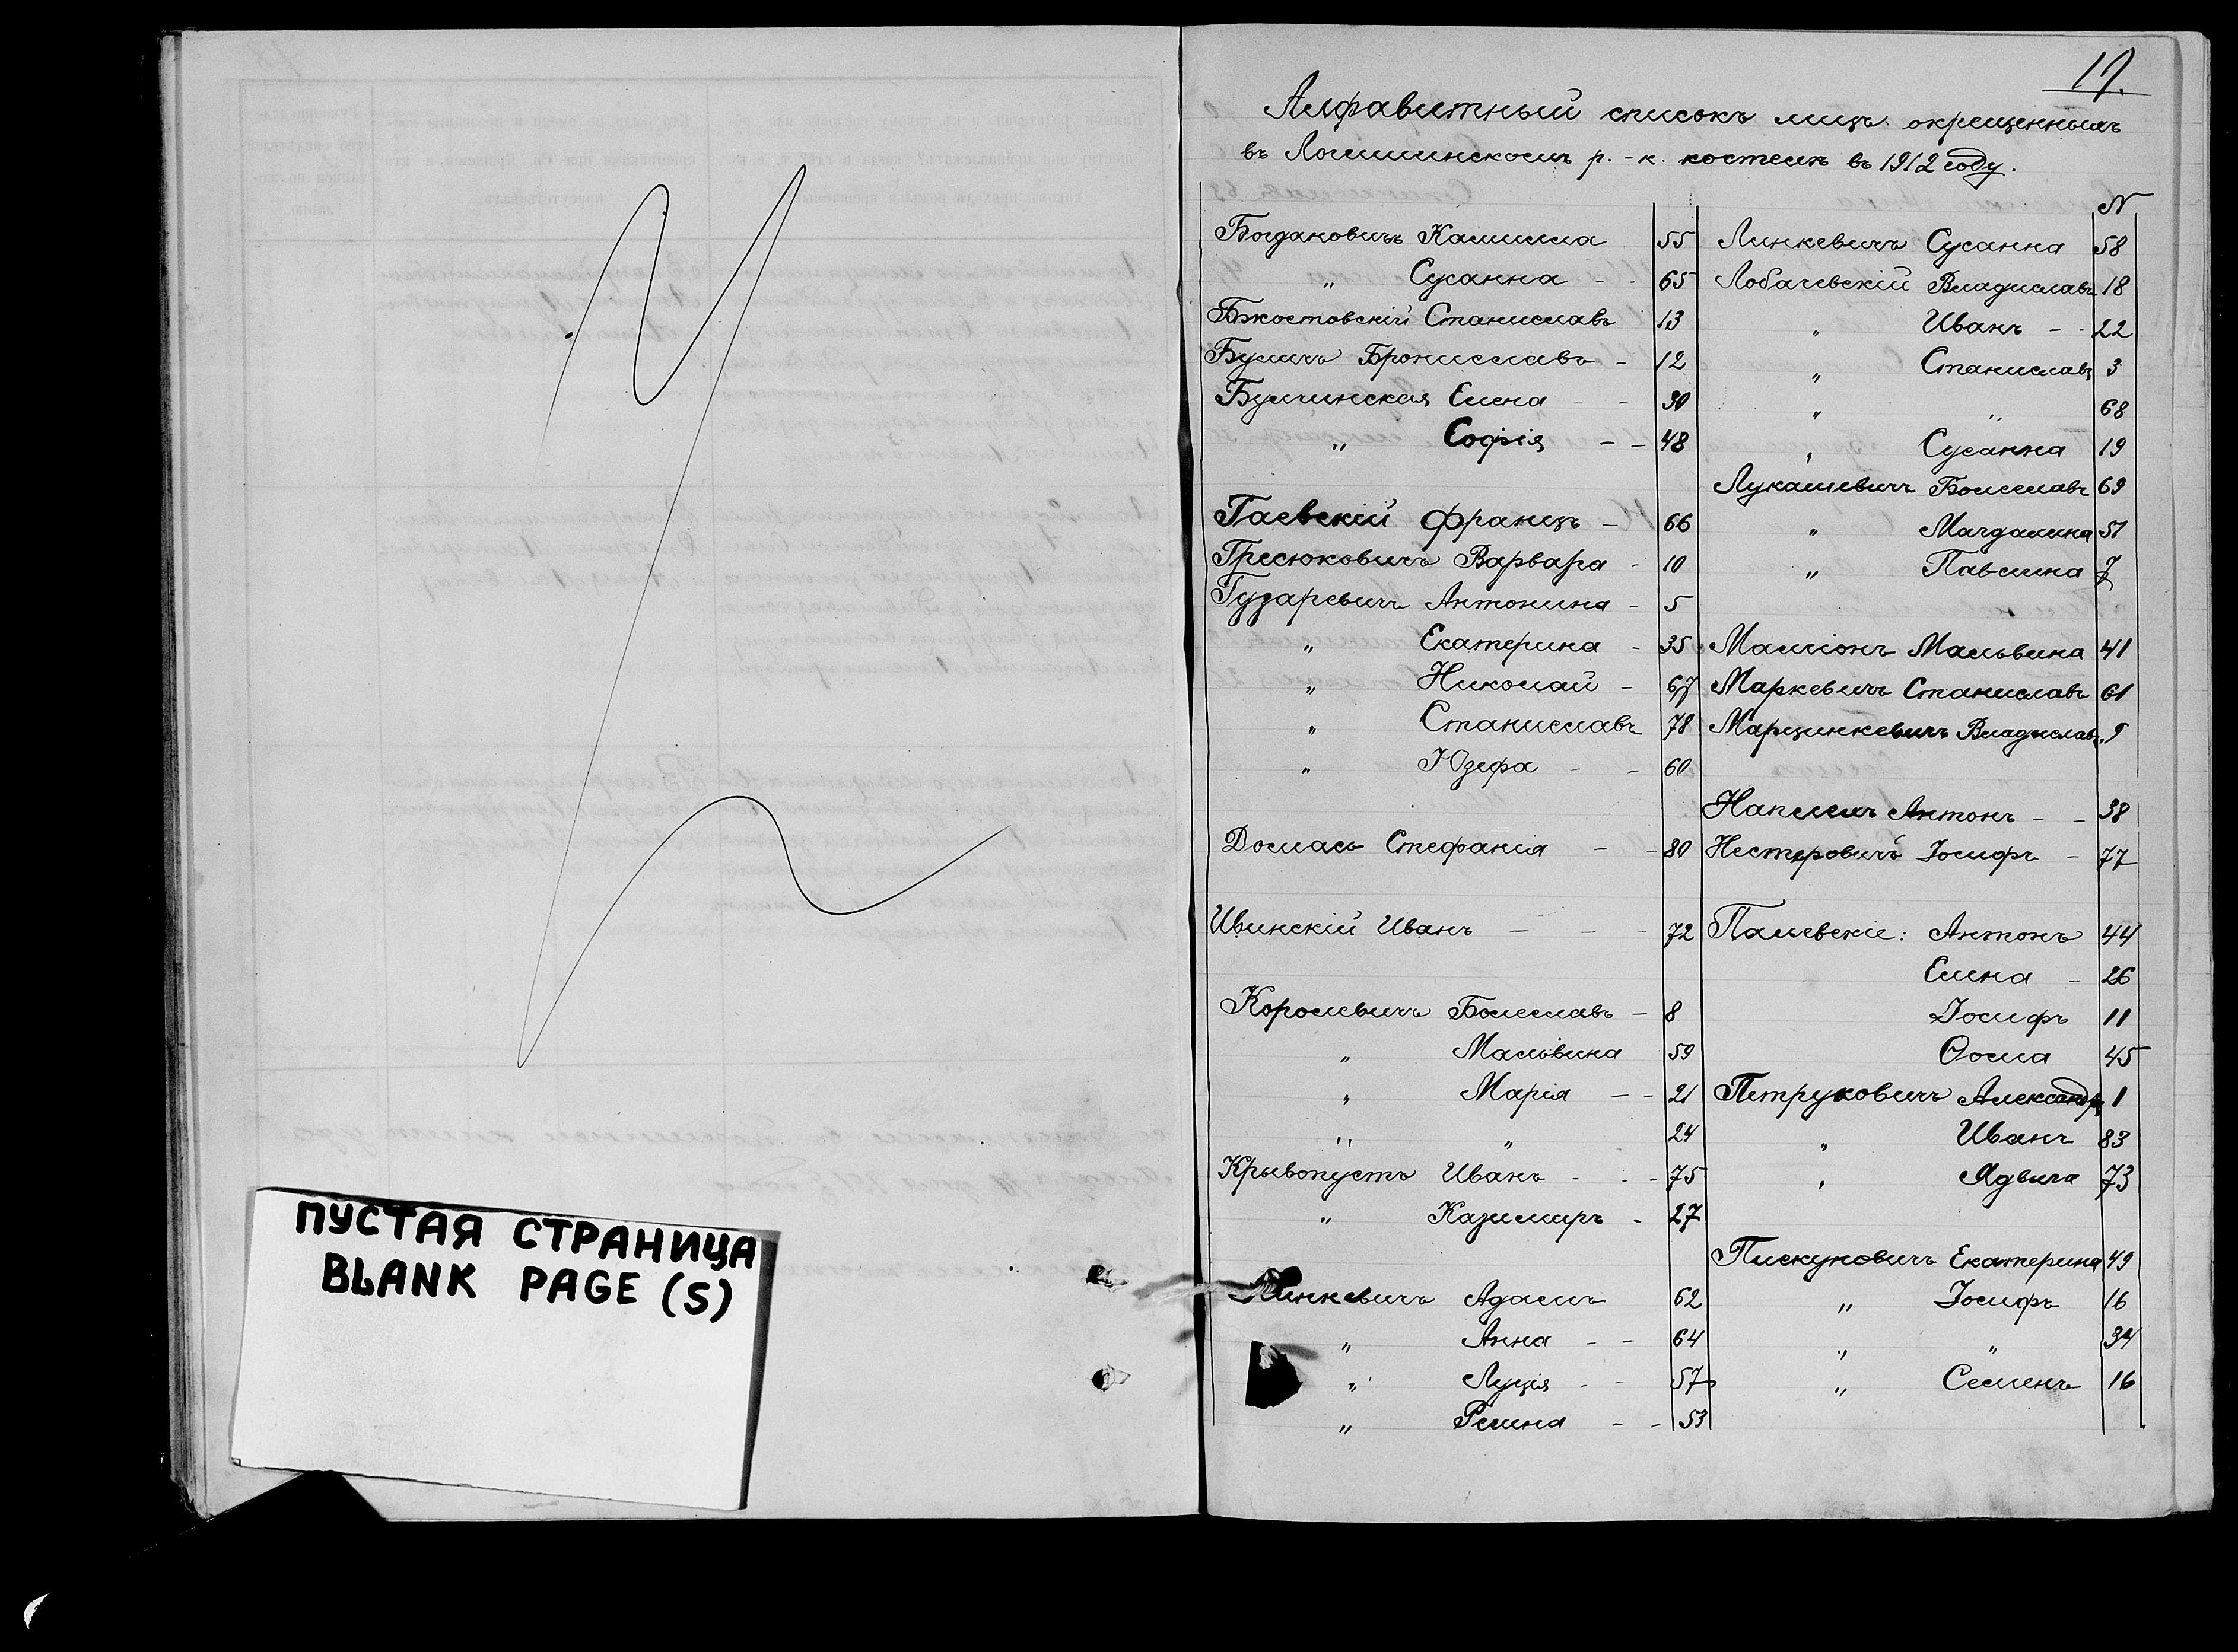 ПУСТАЯ СТРАНИЦА
BLANK PAGE (S)
17.
Алфавитный списокъ лицъ окрещенныхъ
въ Логишинскомъ р.-к. костелѣ въ 1912 году.
Богдановичъ Камилла 55
„ Сусанна - - 65
Бжостовскій Станиславъ 13
Буличъ Брониславъ - 12
Булчинская Елена - - 30
„ Софія - - 48
Гаевскій Францъ - 66
Гресюковичъ Варвара - 10
Гузаревичъ Антонина - 5
„ Екатерина - 35
„ Николай - 67
„ Станиславъ 78
„ Юзефа - - 60
Домась Стефанія - - 80
Ивинскій Иванъ - - - 72
Королевичъ Болеславъ - 8
„ Мальвина 59
„ Марія - - 21
„ „ 24
Крывопустъ Иванъ - - - 75
„ Казимиръ - 27
Линкевичъ Адамъ 62
„ Анна - - 64
„ Луція - - 57
„ Регина - - 53
N
Линкевичъ Сусанна 58
Лобачевскій Владиславъ 18
„ Иванъ - - 22
„ Станиславъ 3
„ „ 68
„ Сусанна 19
Лукашевичъ Болеславъ 69
„ Магдалина 51
„ Павлина 7
Малліонъ Мальвина 41
Маркевичъ Станиславъ 61
Марцинкевичъ Владиславъ 9
Антонъ - - 38
Нестеровичъ Іосифъ - 77
Палевскіе: Антонъ 44
Елена - 26
Іосифъ 11
Ѳома 45
Петруковичъ Александръ 1
„ Иванъ 83
„ Ядвига 73
Пискуновичъ Екатерина 49
„ Іосифъ 16
„ „ 34
„ Семенъ 16